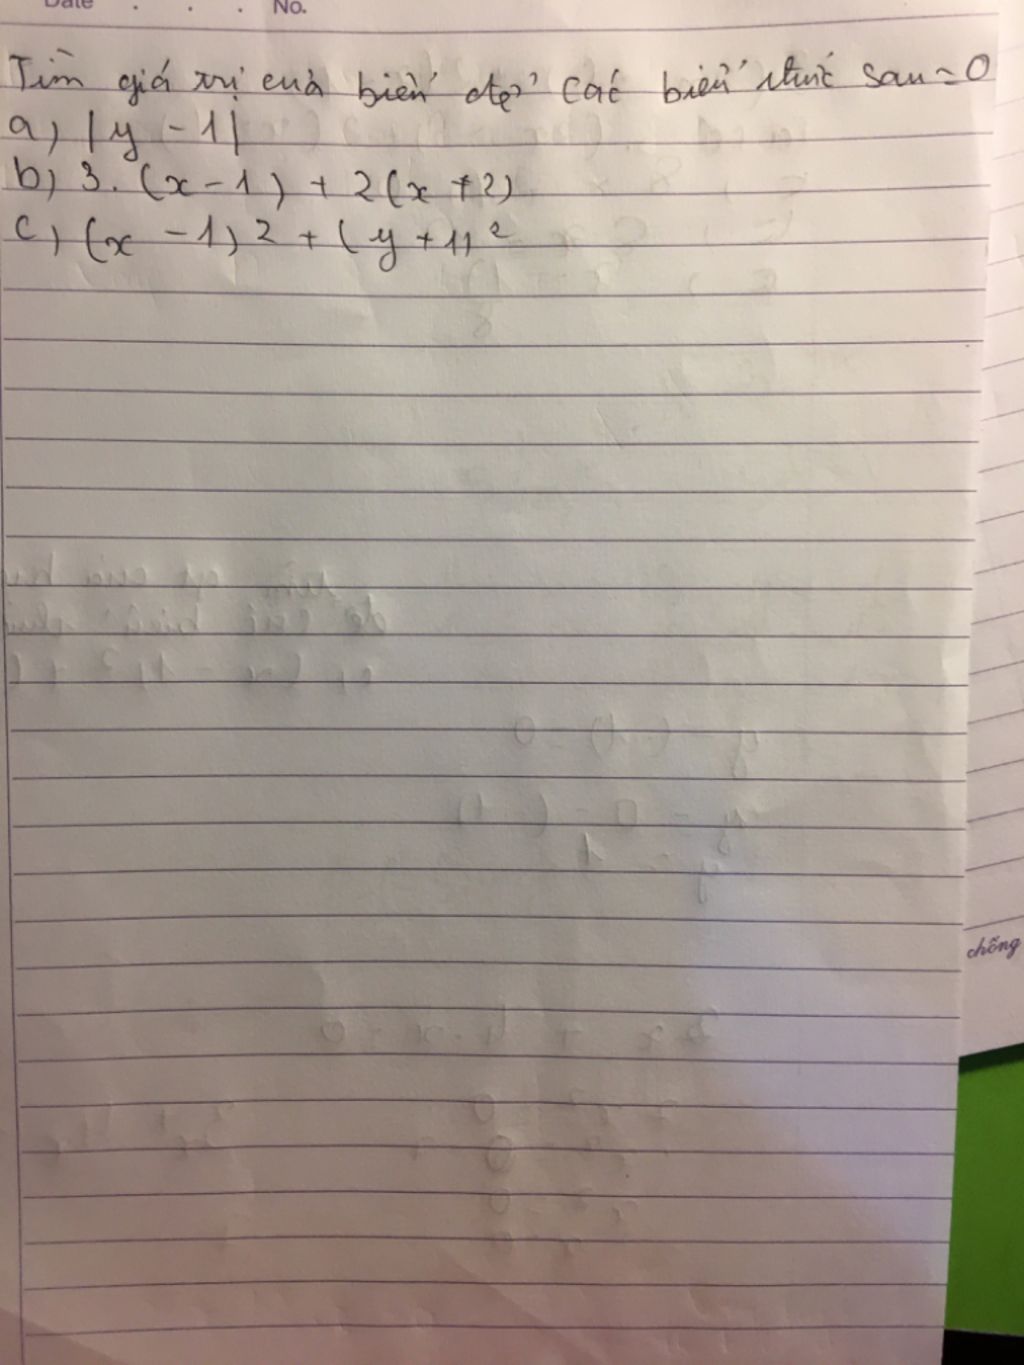 Date . . . No.
Tìm giá trị của biến để các biểu thức sau = 0
a) |y - 1|
b) 3. (x - 1) + 2(x + 2)
c) (x - 1) 2 + (y + 1) ²
chồng